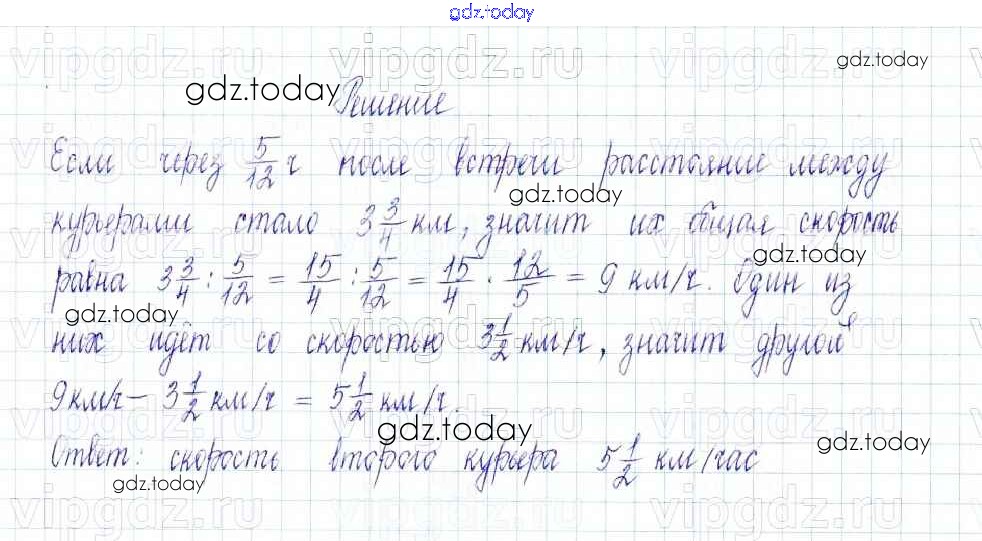 gdz.today
vipgdz.ru vipgdz.ru vipgdz.ru
gdz.today
gdz.today Решение
Если через 5/12 ч после встречи расстояние между
gdz.today
курьерами стало 3 3/4 км, значит их общая скорость
gdz.today
равна 3 3/4 : 5/12 = 15/4 : 5/12 = 15/4 · 12/5 = 9 км/ч. Один из
gdz.today
них идёт со скоростью 3 1/2 км/ч, значит другой
9км/ч – 3 1/2 км/ч = 5 1/2 км/ч.
gdz.today
gdz.today
Ответ: скорость второго курьера 5 1/2 км/час
gdz.today
vipgdz.ru vipgdz.ru vipgdz.ru